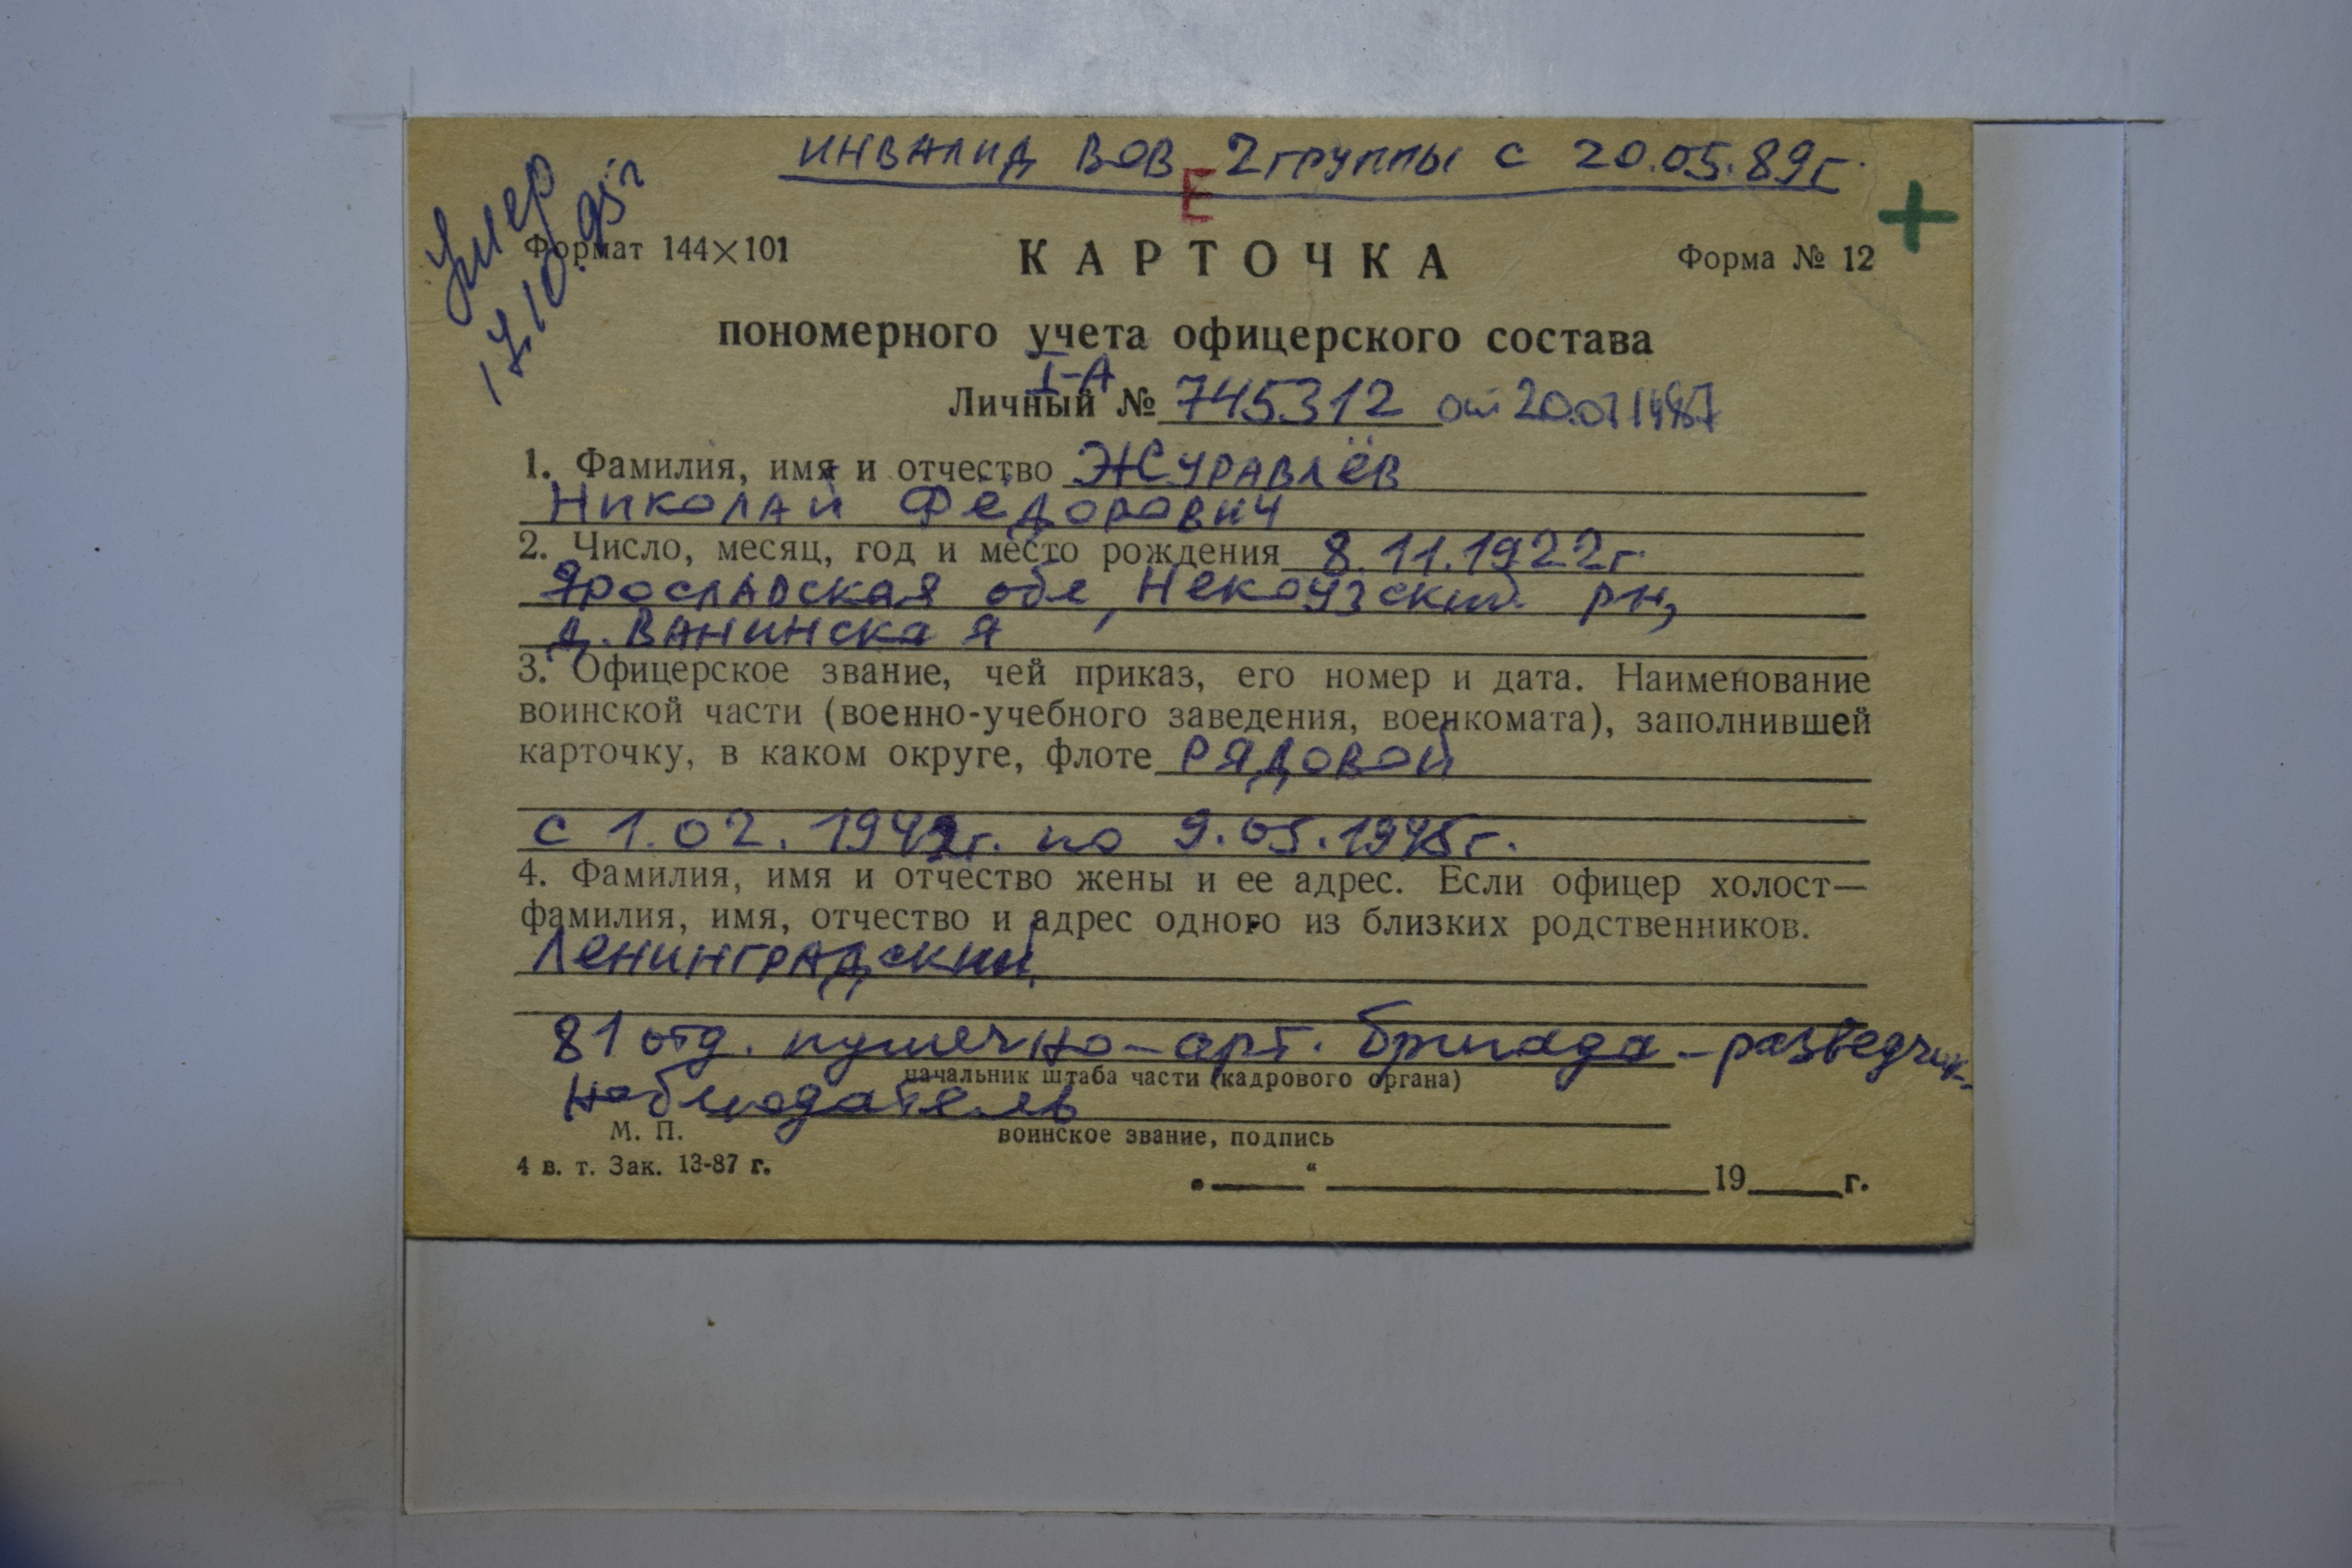 ИНВАЛИД ВОВ 2 группы с 20.05.89г.
Е
Умер
17.10.95г
Формат 144×101
КАРТОЧКА
Форма № 12
+
пономерного учета офицерского состава
I-А
Личный № 745312 от 20.07 1987
1. Фамилия, имя и отчество ЖУРАВЛЁВ
Николай Фёдорович
2. Число, месяц, год и место рождения 8.11.1922г.
Ярославская обл, Некоузский рн,
д. Ванинская
3. Офицерское звание, чей приказ, его номер и дата. Наименование
воинской части (военно-учебного заведения, военкомата), заполнившей
карточку, в каком округе, флоте РЯДОВОЙ
с 1.02.1942г. по 9.05.1945г.
4. Фамилия, имя и отчество жены и ее адрес. Если офицер холост—
фамилия, имя, отчество и адрес одного из близких родственников.
Ленинградский
81 отд. пушечно-арт. бригада - разведчик-
начальник штаба части (кадрового органа)
наблюдатель
М. П.
воинское звание, подпись
4 в. т. Зак. 13-87 г.
„ “ 19 г.